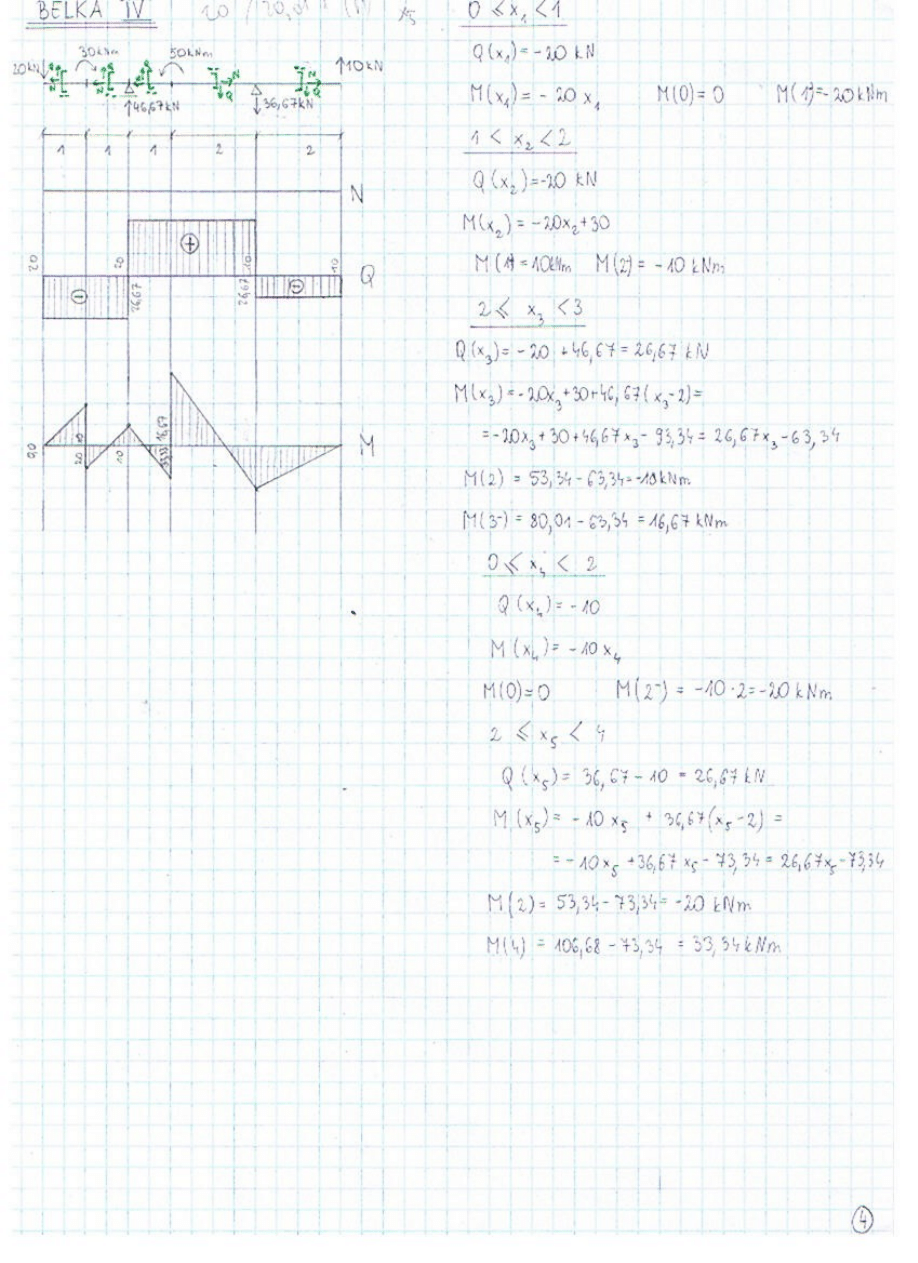 BELKA IV
20kN 30kNm 50kNm 10kN
46,67kN 36,67kN
1 1 1 2 2
N
20 20 26,67 26,67 10 10 Q
20 10 10 16,67 M
0 ≤ x₁ < 1
Q(x₁) = -20 kN
M(x₁) = - 20 x₁ M(0) = 0 M(1⁻) = -20 kNm
1 < x₂ < 2
Q(x₂) = -20 kN
M(x₂) = -20x₂+30
M(1⁺) = 10kNm M(2⁻) = -10 kNm
2 ≤ x₃ < 3
Q(x₃) = -20 +46,67 = 26,67 kN
M(x₃) = -20x₃+30+46,67(x₃-2) =
= -20x₃+30+46,67x₃ - 93,34 = 26,67x₃-63,34
M(2) = 53,34-63,34 = -10kNm
M(3⁻) = 80,01-63,34 = 16,67 kNm
0 ≤ x₄ < 2
Q(x₄) = -10
M(x₄) = -10x₄
M(0) = 0 M(2⁻) = -10·2 = -20 kNm
2 ≤ x₅ < 4
Q(x₅) = 36,67-10 = 26,67 kN
M(x₅) = -10x₅ + 36,67(x₅-2) =
= -10x₅ +36,67x₅ - 73,34 = 26,67x₅-73,34
M(2) = 53,34-73,34 = -20 kNm
M(4) = 106,68-73,34 = 33,34kNm
4